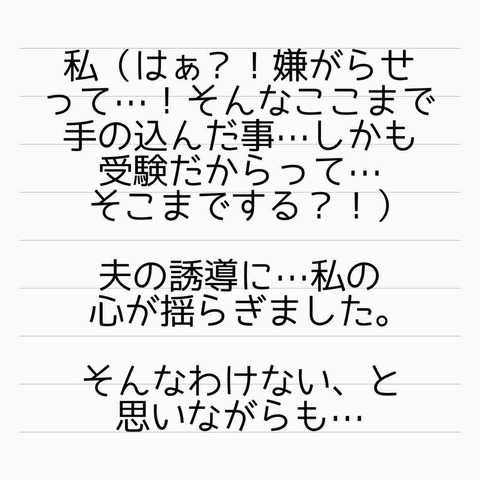 私（はぁ？！嫌がらせ
って…！そんなここまで
手の込んだ事…しかも
受験だからって…
そこまでする？！）
夫の誘導に…私の
心が揺らぎました。
そんなわけない、と
思いながらも…